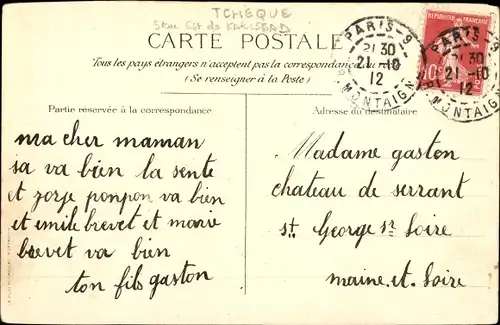 TCHEQUE
CARTE POSTALE
Tous les pays étrangers n'acceptent pas la correspondance au
(Se renseigner à la Poste)
PARIS-9
21 30
21 -10
12
MONTAIGN
REPUBLIQUE FRANÇAISE
10
PARIS-9
21 30
21 -10
12
MONTAIGN
Partie réservée à la correspondance
ma cher maman
sa va bien la sente
et zorze ponpon va bien
et emile brevet et marie
brevet va bien
ton fils gaston
Adresse du destinataire
Madame gaston
chateau de serrant
st George sr Loire
maine.et.Loire